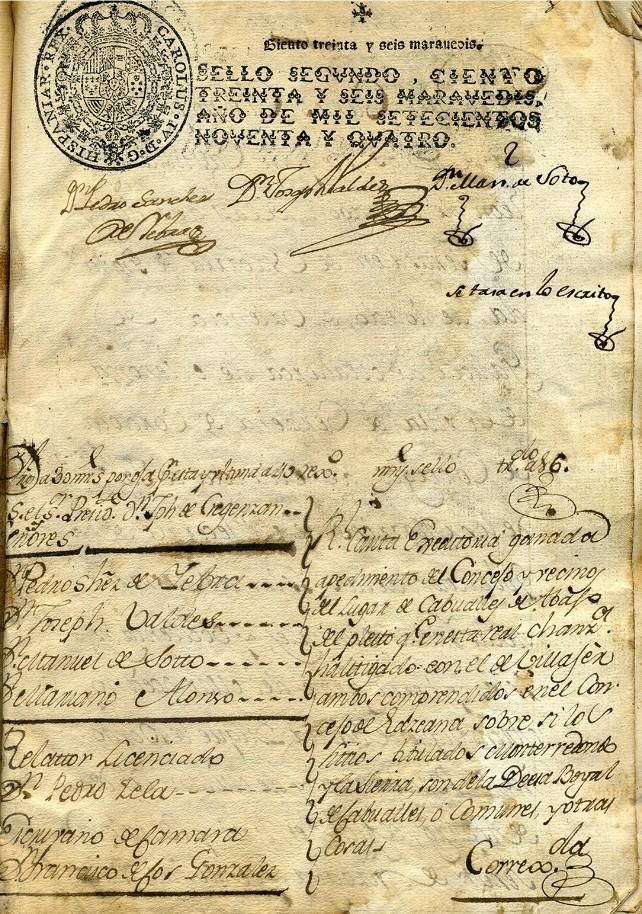 CAROLUS. IV. D. G. HISPANIAR. REX.
Ciento treinta y seis maravedis.
SELLO SEGVNDO, CIENTO
TREINTA Y SEIS MARAVEDIS,
AÑO DE MIL SETECIENTOS
NOVENTA Y QVATRO.
Dn. Pedro Sanchez
de Yebra
Dn. Joseph Valdes
Dn. Man. de Soto
se tasa en lo escrito
sello
S. el Sr. Dn. Jph de
Señores
Dn. Pedro Shēz de Yebra
Dn. Joseph Valdes
Dn. Manuel de Sotto
Dn. Mariano Alonso
Relattor Licenciado
Dn. Pedro Zela
Escrivano de Camara
Dn. Francisco de los Gonzalez
Rl. Carta Executtoria ganada
a pedimento del Concejo y vecinos
del Lugar de Cabualles de Abajo
del pleito q. en esta real chanz.a
ha litigado con el de Villaser
ambos comprendidos en el Con-
cejo de Lazeana, sobre si los
sitios titulados
y la Sierra, son de la Decia Boyal
de Cabualles, ó Comunes, y otras
Cosas
Correx.da